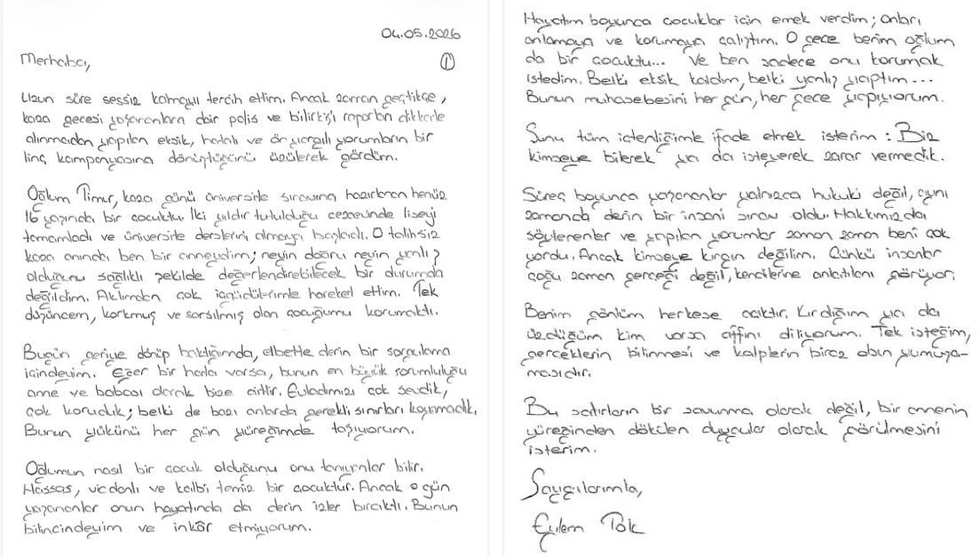 04.05.2026
Merhaba,
①
Uzun süre sessiz kalmayı tercih ettim. Ancak zaman geçtikçe,
kaza gecesi yaşananlara dair polis ve bilirkişi raporları dikkate
alınmadan yapılan eksik, hatalı ve ön yargılı yorumların bir
linç kampanyasına dönüştüğünü üzülerek gördüm.
Oğlum Timur, kaza günü üniversite sınavına hazırlanan henüz
16 yaşında bir çocuktu. İki yıldır tutulduğu cezaevinde liseyi
tamamladı ve üniversite derslerini almaya başladı. O talihsiz
kaza anında ben bir anneydim; neyin doğru neyin yanlış
olduğunu sağlıklı şekilde değerlendirebilecek bir durumda
değildim. Aklımdan çok içgüdülerimle hareket ettim. Tek
düşüncem, korkmuş ve sarsılmış olan çocuğumu korumaktı.
Bugün geriye dönüp baktığımda, elbette derin bir sorgulama
içindeyim. Eğer bir hata varsa, bunun en büyük sorumluluğu
anne ve babası olarak bize aittir. Evladımızı çok sevdik,
çok koruduk; belki de bazı anlarda gerekli sınırları koyamadık.
Bunun yükünü her gün yüreğimde taşıyorum.
Oğlumun nasıl bir çocuk olduğunu onu tanıyanlar bilir.
Hassas, vicdanlı ve kalbi temiz bir çocuktur. Ancak o gün
yaşananlar onun hayatında da derin izler bıraktı. Bunun
bilincindeyim ve inkâr etmiyorum.
Hayatım boyunca çocuklar için emek verdim; onları
anlamaya ve korumaya çalıştım. O gece benim oğlum
da bir çocuktu... Ve ben sadece onu korumak
istedim. Belki eksik kaldım, belki yanlış yaptım...
Bunun muhasebesini her gün, her gece yapıyorum.
Şunu tüm içtenliğimle ifade etmek isterim: Biz
kimseye bilerek ya da isteyerek zarar vermedik.
Süreç boyunca yaşananlar yalnızca hukuki değil, aynı
zamanda derin bir insani sınav oldu. Hakkımızda
söylenenler ve yapılan yorumlar zaman zaman beni çok
yordu. Ancak kimseye kırgın değilim. Çünkü insanlar
çoğu zaman gerçeği değil, kendilerine anlatılanı görüyor.
Benim gönlüm herkese açıktır. Kırdığım ya da
üzdüğüm kim varsa affını diliyorum. Tek isteğim,
gerçeklerin bilinmesi ve kalplerin biraz olsun yumuşa-
masıdır.
Bu satırların bir savunma olarak değil, bir annenin
yüreğinden dökülen duygular olarak görülmesini
isterim.
Saygılarımla,
Eylem Tok